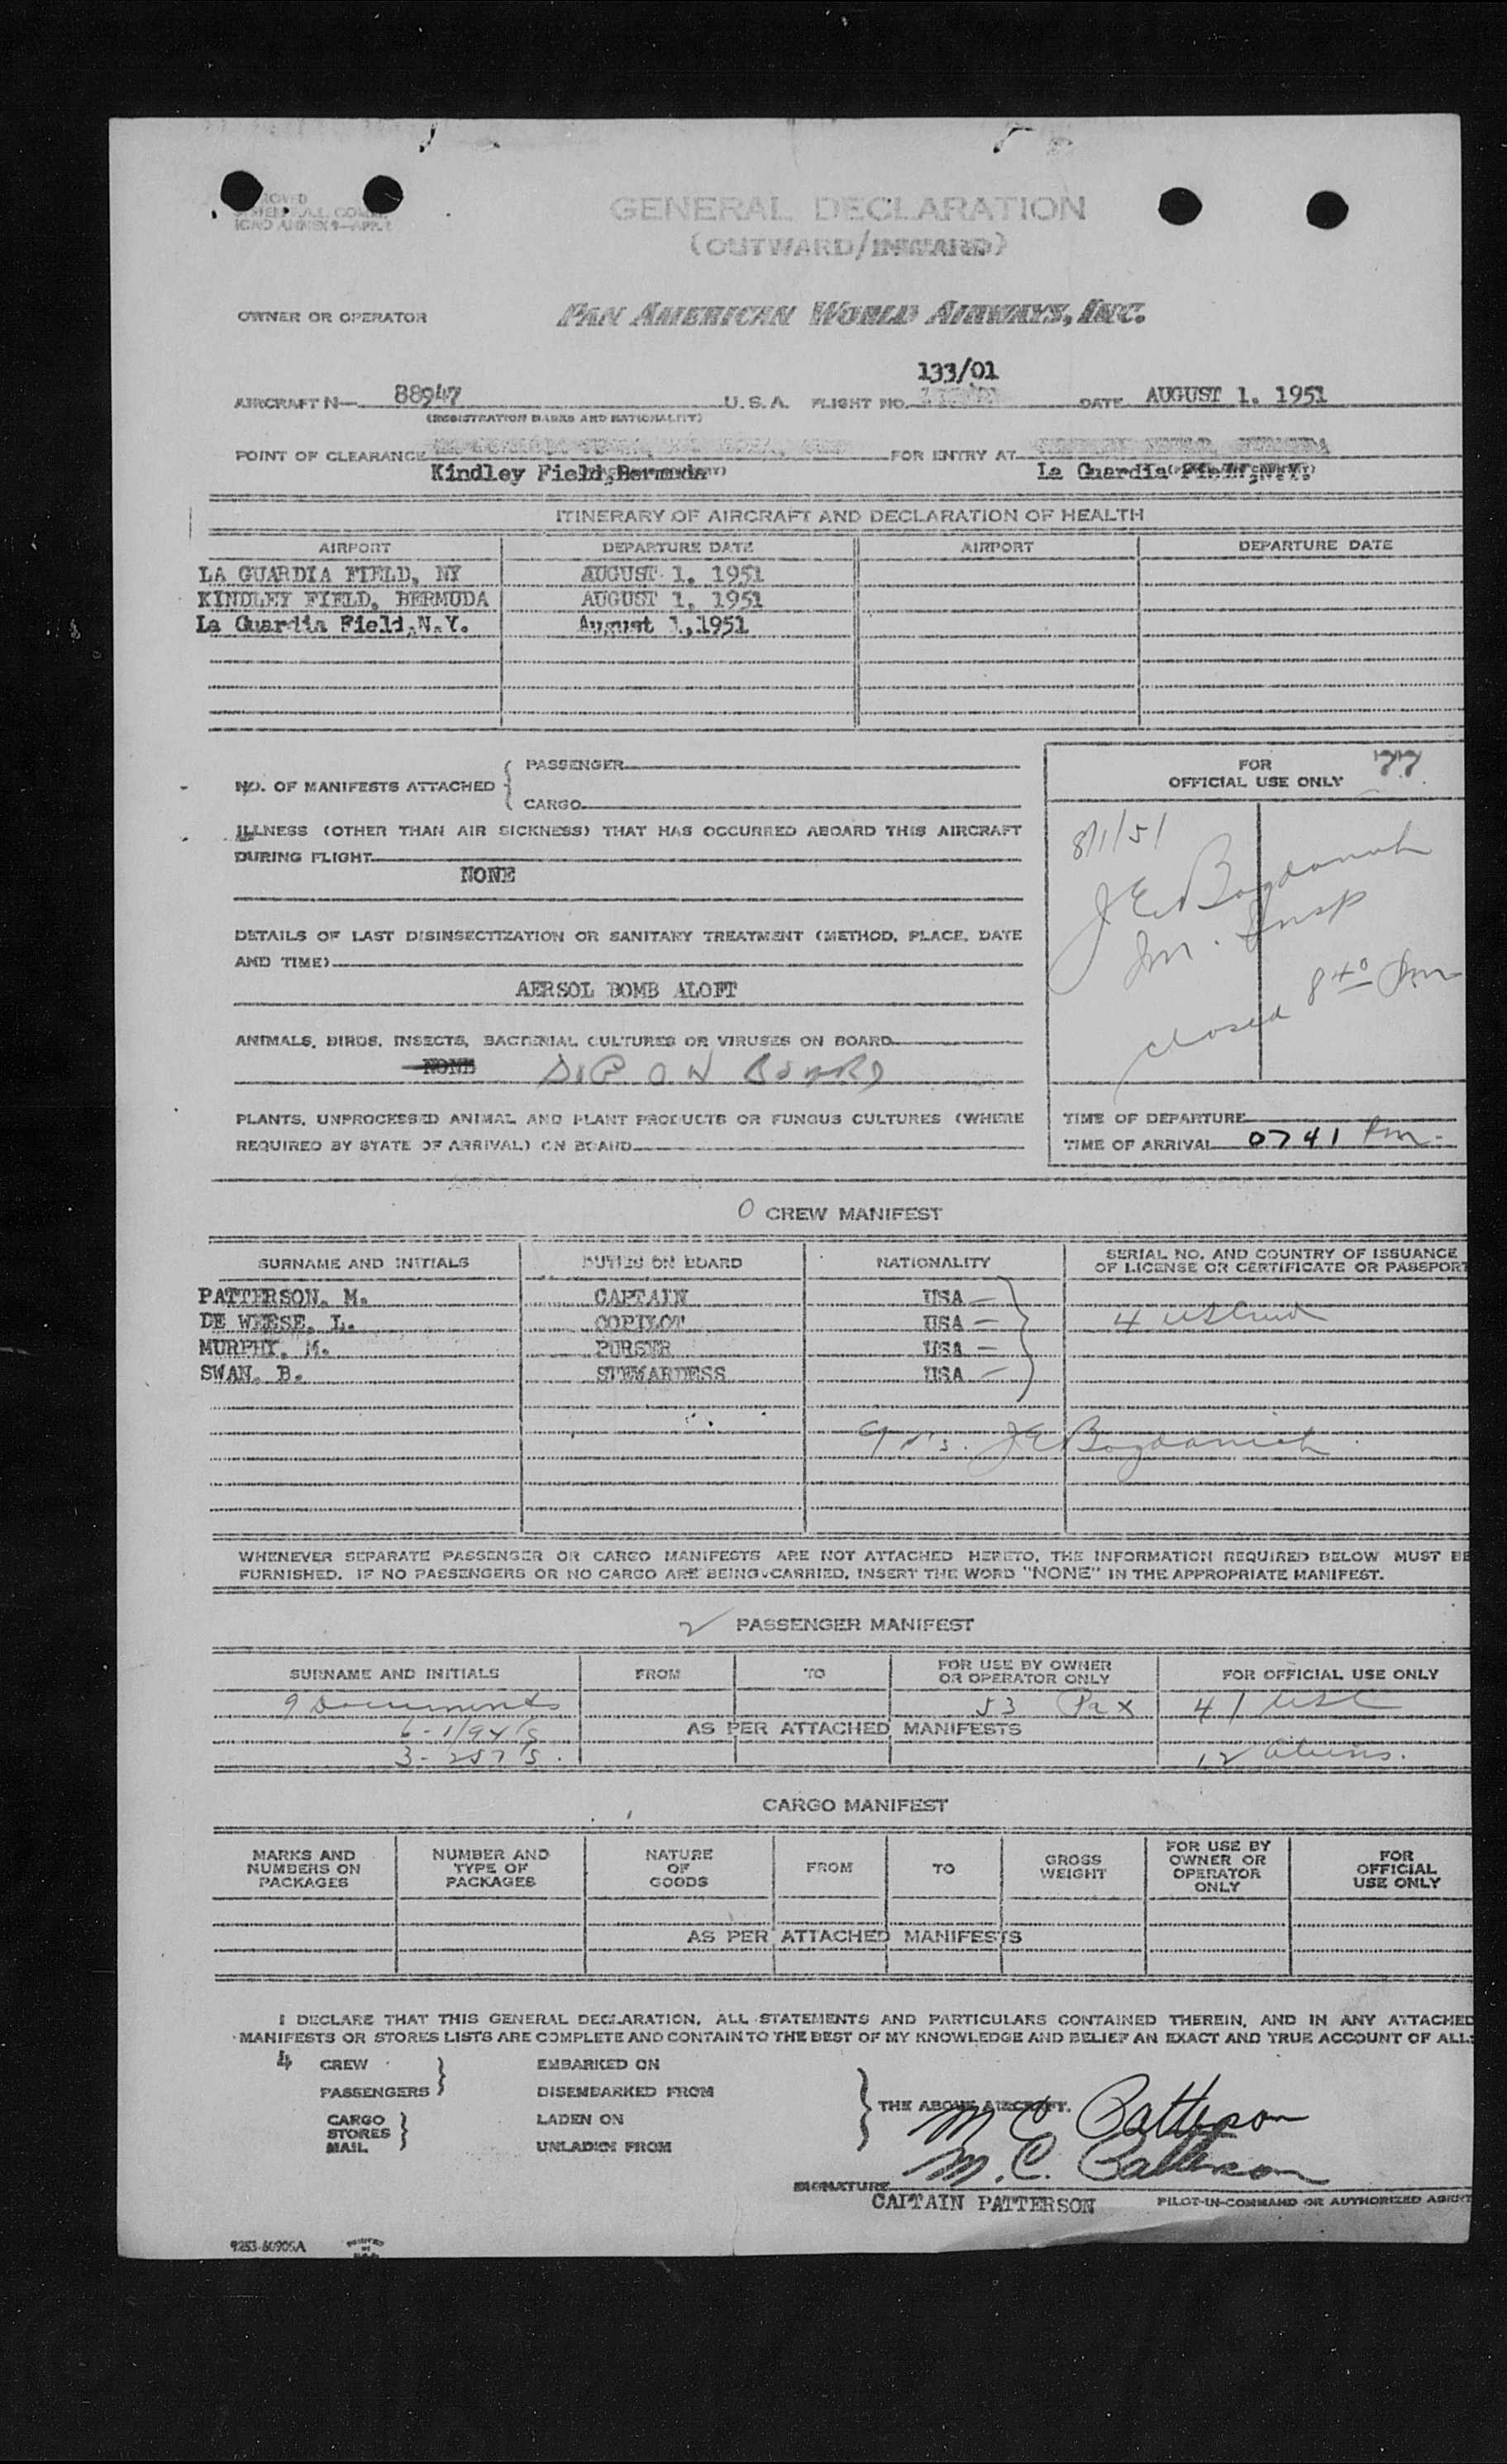 GENERAL DECLARATION
(OUTWARD/INWARD)
OWNER OR OPERATOR PAN AMERICAN WORLD AIRWAYS, INC.
133/01
AIRCRAFT N— 88947 U. S. A. FLIGHT NO. DATE AUGUST 1, 1951
(REGISTRATION MARKS AND NATIONALITY)
POINT OF CLEARANCE FOR ENTRY AT
Kindley Field, Bermuda La Guardia Field, N.Y.
ITINERARY OF AIRCRAFT AND DECLARATION OF HEALTH
AIRPORT DEPARTURE DATE AIRPORT DEPARTURE DATE
LA GUARDIA FIELD, NY AUGUST 1, 1951
KINDLEY FIELD, BERMUDA AUGUST 1, 1951
La Guardia Field, N.Y. August 1, 1951
NO. OF MANIFESTS ATTACHED { PASSENGER
CARGO
ILLNESS (OTHER THAN AIR SICKNESS) THAT HAS OCCURRED ABOARD THIS AIRCRAFT
DURING FLIGHT
NONE
DETAILS OF LAST DISINSECTIZATION OR SANITARY TREATMENT (METHOD, PLACE, DATE
AND TIME)
AERSOL BOMB ALOFT
ANIMALS, BIRDS, INSECTS, BACTERIAL CULTURES OR VIRUSES ON BOARD
NONE ON BOARD
PLANTS, UNPROCESSED ANIMAL AND PLANT PRODUCTS OR FUNGUS CULTURES (WHERE
REQUIRED BY STATE OF ARRIVAL) ON BOARD
FOR
OFFICIAL USE ONLY 77
8/1/51
J E Bogdanich
Im. Insp
closed 8 40 pm
TIME OF DEPARTURE
TIME OF ARRIVAL 0741 pm
0 CREW MANIFEST
SURNAME AND INITIALS DUTIES ON BOARD NATIONALITY SERIAL NO. AND COUNTRY OF ISSUANCE
OF LICENSE OR CERTIFICATE OR PASSPORT
PATTERSON, M. CAPTAIN USA —
DE WEESE, L. COPILOT USA —
MURPHY, M. PURSER USA —
SWAN, B. STEWARDESS USA —
J E Bogdanich
WHENEVER SEPARATE PASSENGER OR CARGO MANIFESTS ARE NOT ATTACHED HERETO, THE INFORMATION REQUIRED BELOW MUST BE
FURNISHED. IF NO PASSENGERS OR NO CARGO ARE BEING CARRIED, INSERT THE WORD "NONE" IN THE APPROPRIATE MANIFEST.
2 PASSENGER MANIFEST
SURNAME AND INITIALS FROM TO FOR USE BY OWNER
OR OPERATOR ONLY FOR OFFICIAL USE ONLY
9 Documents 53 Pax 41 USC
6 - I/94's AS PER ATTACHED MANIFESTS
3 - 257's. 12 Aliens.
CARGO MANIFEST
MARKS AND
NUMBERS ON
PACKAGES NUMBER AND
TYPE OF
PACKAGES NATURE
OF
GOODS FROM TO GROSS
WEIGHT FOR USE BY
OWNER OR
OPERATOR
ONLY FOR
OFFICIAL
USE ONLY
AS PER ATTACHED MANIFESTS
I DECLARE THAT THIS GENERAL DECLARATION, ALL STATEMENTS AND PARTICULARS CONTAINED THEREIN, AND IN ANY ATTACHED
MANIFESTS OR STORES LISTS ARE COMPLETE AND CONTAIN TO THE BEST OF MY KNOWLEDGE AND BELIEF AN EXACT AND TRUE ACCOUNT OF ALL:
4 CREW EMBARKED ON
PASSENGERS DISEMBARKED FROM
CARGO LADEN ON
STORES
MAIL UNLADEN FROM
THE ABOVE AIRCRAFT.
M C Patterson
M. C. Patterson
SIGNATURE
CAPTAIN PATTERSON PILOT-IN-COMMAND OR AUTHORIZED AGENT
9253-60905A